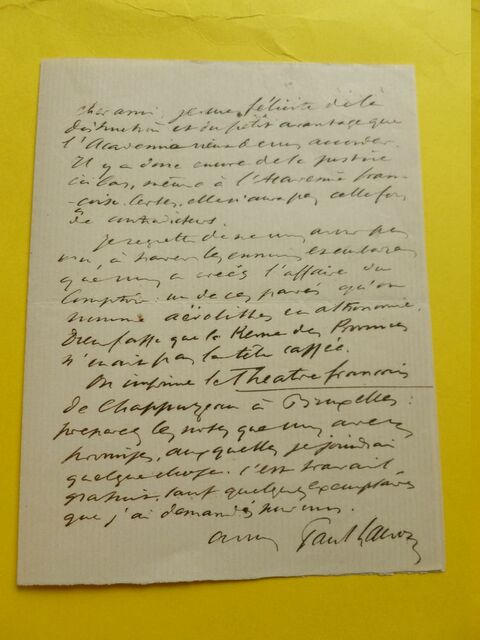 cher ami, je me félicite de la
distinction et du petit avantage que
l'Académie vient de vous accorder.
Il y a donc encore de la justice
ici bas, même à l'Académie fran-
çaise. Certes, elle n'aura pas cette fois
de contradicteurs.
Je regrette de ne vous avoir pas
vu, à travers les ennuis
que vous a créés l'affaire du
Comptoir: un de ces pavés qu'on
nomme aérolithes en astronomie.
Dieu fasse que la Revue des Provinces
n'en ait pas la tête cassée.
On imprime le Théatre françois
de Chappuzeau à Bruxelles:
preparez les notes que vous avez
promises, auxquelles je joindrai
quelque chose. C'est travail
gratuit, sauf quelques exemplaires
que j'ai demandés pour nous.
Paul Lacroix